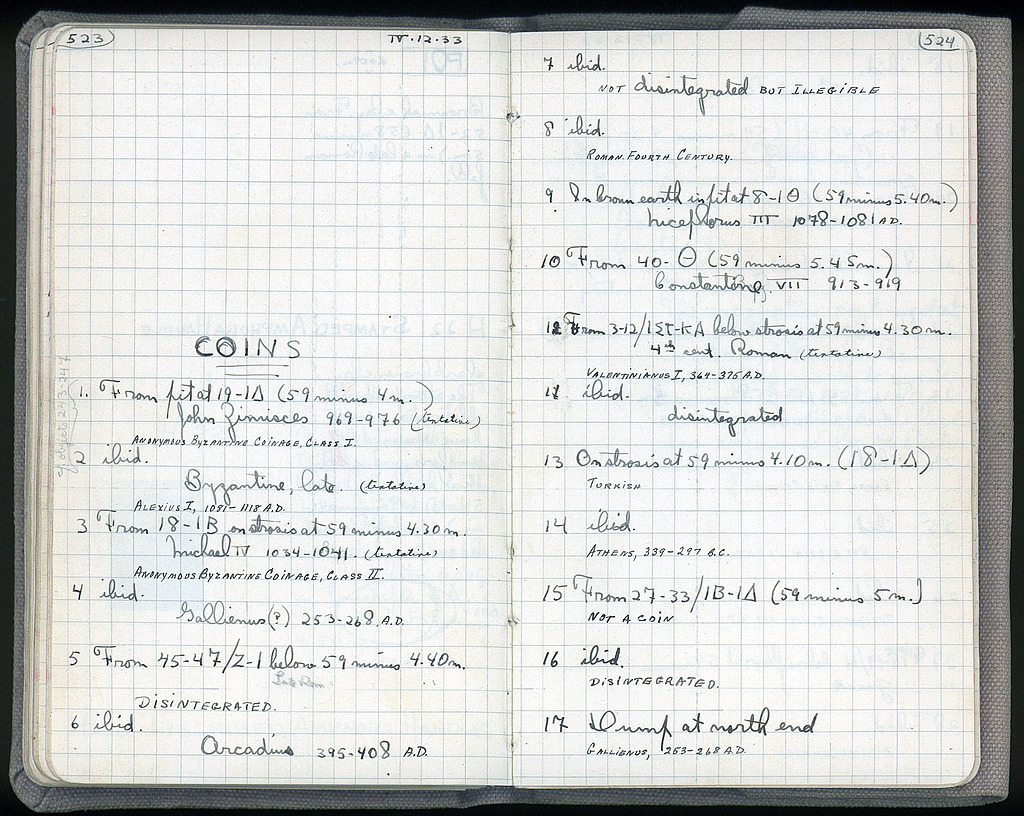 523
IV·12·33
COINS
1. From pit at 19-1Δ (59 minus 4m.)
John Zimisces 969-976 (tentative)
ANONYMOUS BYZANTINE COINAGE, CLASS I.
2 ibid.
Byzantine, late. (tentative)
ALEXIUS I, 1081-1118 A.D.
3 From 18-1B on strosis at 59 minus 4.30m.
Michael IV 1034-1041. (tentative)
ANONYMOUS BYZANTINE COINAGE, CLASS II.
4 ibid.
Gallienus(?) 253-268, A.D.
5 From 45-47/Z-1 below 59 minus 4.40m.
DISINTEGRATED.
6 ibid.
Arcadius 395-408 A.D.
524
7 ibid.
NOT disintegrated BUT ILLEGIBLE
8 ibid.
ROMAN. FOURTH CENTURY.
9 In brown earth in pit at 8-1Θ (59 minus 5.40m.)
Nicephorus III 1078-1081 A.D.
10 From 40-Θ (59 minus 5.45m.)
Constantine VII 913-919
12 From 3-12/ below strosis at 59 minus 4.30m.
4th cent. Roman (tentative)
VALENTINIANUS I, 364-375 A.D.
11 ibid.
disintegrated
13 On strosis at 59 minus 4.10m. (18-1Δ)
TURKISH
14 ibid.
ATHENS, 339-297 B.C.
15 From 27-33/1B-1Δ (59 minus 5m.)
NOT A COIN
16 ibid.
DISINTEGRATED.
17 Dump at north end
GALLIENUS, 253-268 A.D.